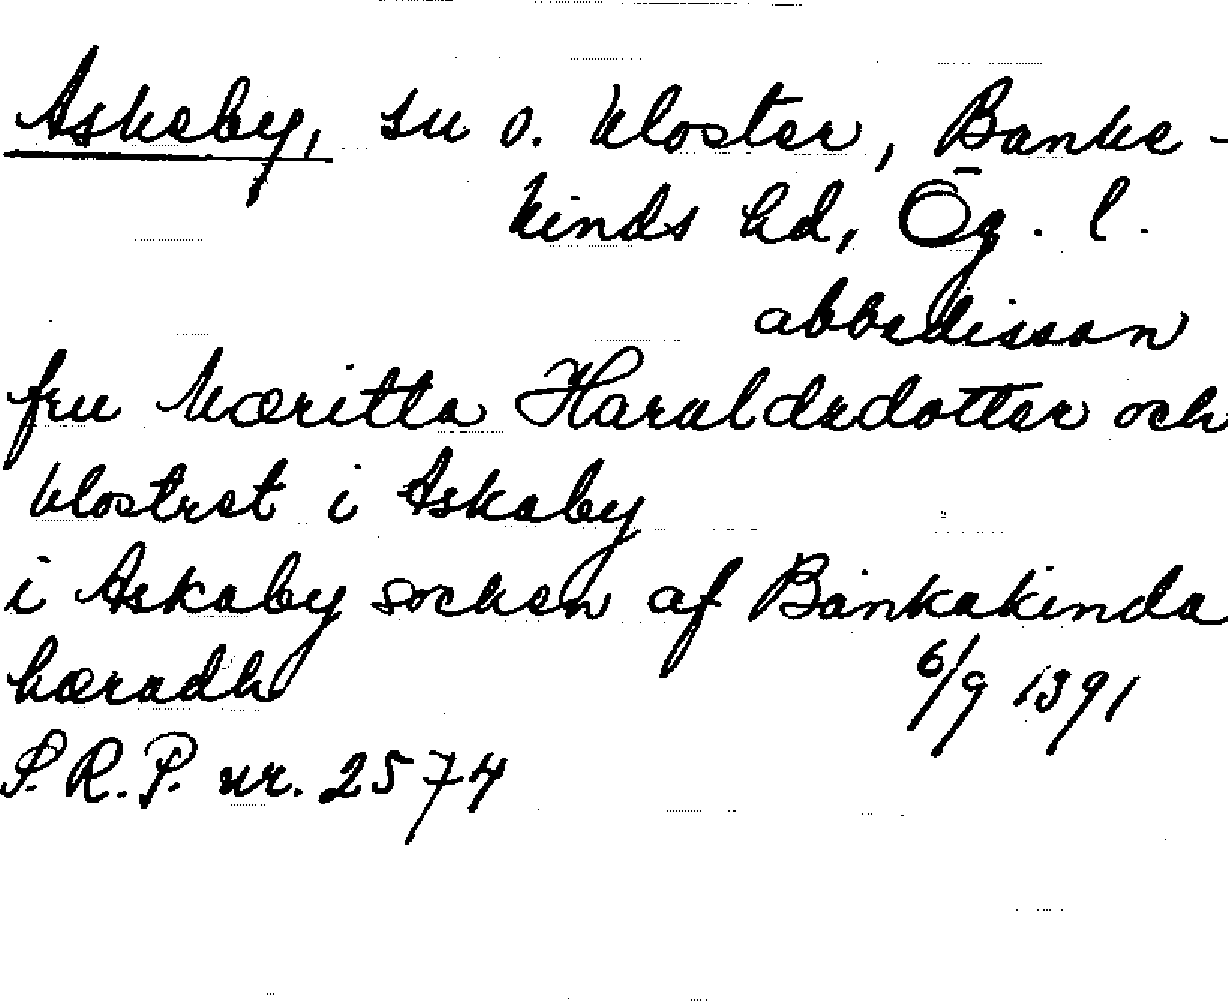 Askeby, sn o. kloster, Banke-
kinds hd, Ög. l.
abbedissan
fru Mæritta Haraldsdotter och
klostret i Askaby
i Askaby socken af Bankakinda
hæradh 6/9 1391
S.R.P. nr. 2574